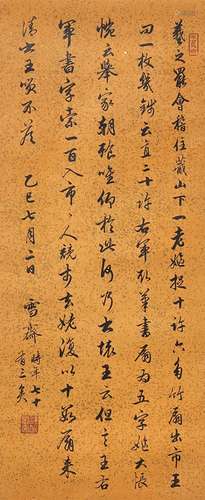 羲之罷會稽住蕺山下一老嫗捉十許六角竹扇出市王
一枚幾錢云直二十許右軍取筆書扇為五字嫗大悵
惋云舉家朝飡唯仰於此何乃書壞王云但言王右
軍書字索一百入市〻人競市去姥復以十數扇來
請書王笑不答 乙巳七月二日 雪齋時年七十
有三矣